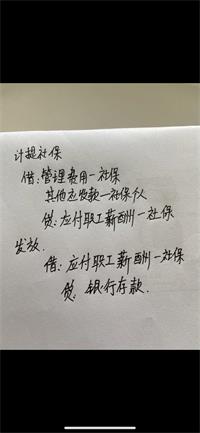 计提社保
借:管理费用一社保
其他应发款一社保个人
贷:应付职工薪酬一社保
发放.
借:应付职工薪酬一社保
贷:银行存款.